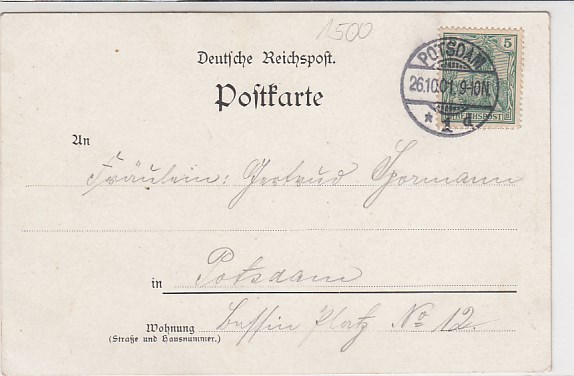 1500
Deutsche Reichspost.
Postkarte
5
POTSDAM
26.10.01.9-10N.
* 1 d
REICHSPOST
An
Fräulein: Gertrud Gormann
in Potsdam
Wohnung Bassin Platz No 12.
(Straße und Hausnummer.)